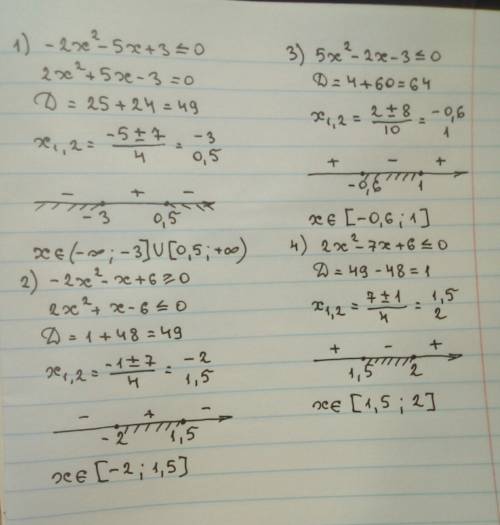 1) -2x²-5x+3≤0
2x²+5x-3=0
D=25+24=49
x₁,₂= (-5±7)/4 = -3
0,5
- + -
-3 0,5
x∈(-∞;-3]∪[0,5;+∞)
2) -2x²-x+6≥0
2x²+x-6≤0
D=1+48=49
x₁,₂= (-1±7)/4 = -2
1,5
- + -
-2 1,5
x∈[-2;1,5]
3) 5x²-2x-3≤0
D=4+60=64
x₁,₂= (2±8)/10 = -0,6
1
+ - +
-0,6 1
x∈[-0,6;1]
4) 2x²-7x+6≤0
D=49-48=1
x₁,₂= (7±1)/4 = 1,5
2
+ - +
1,5 2
x∈[1,5;2]